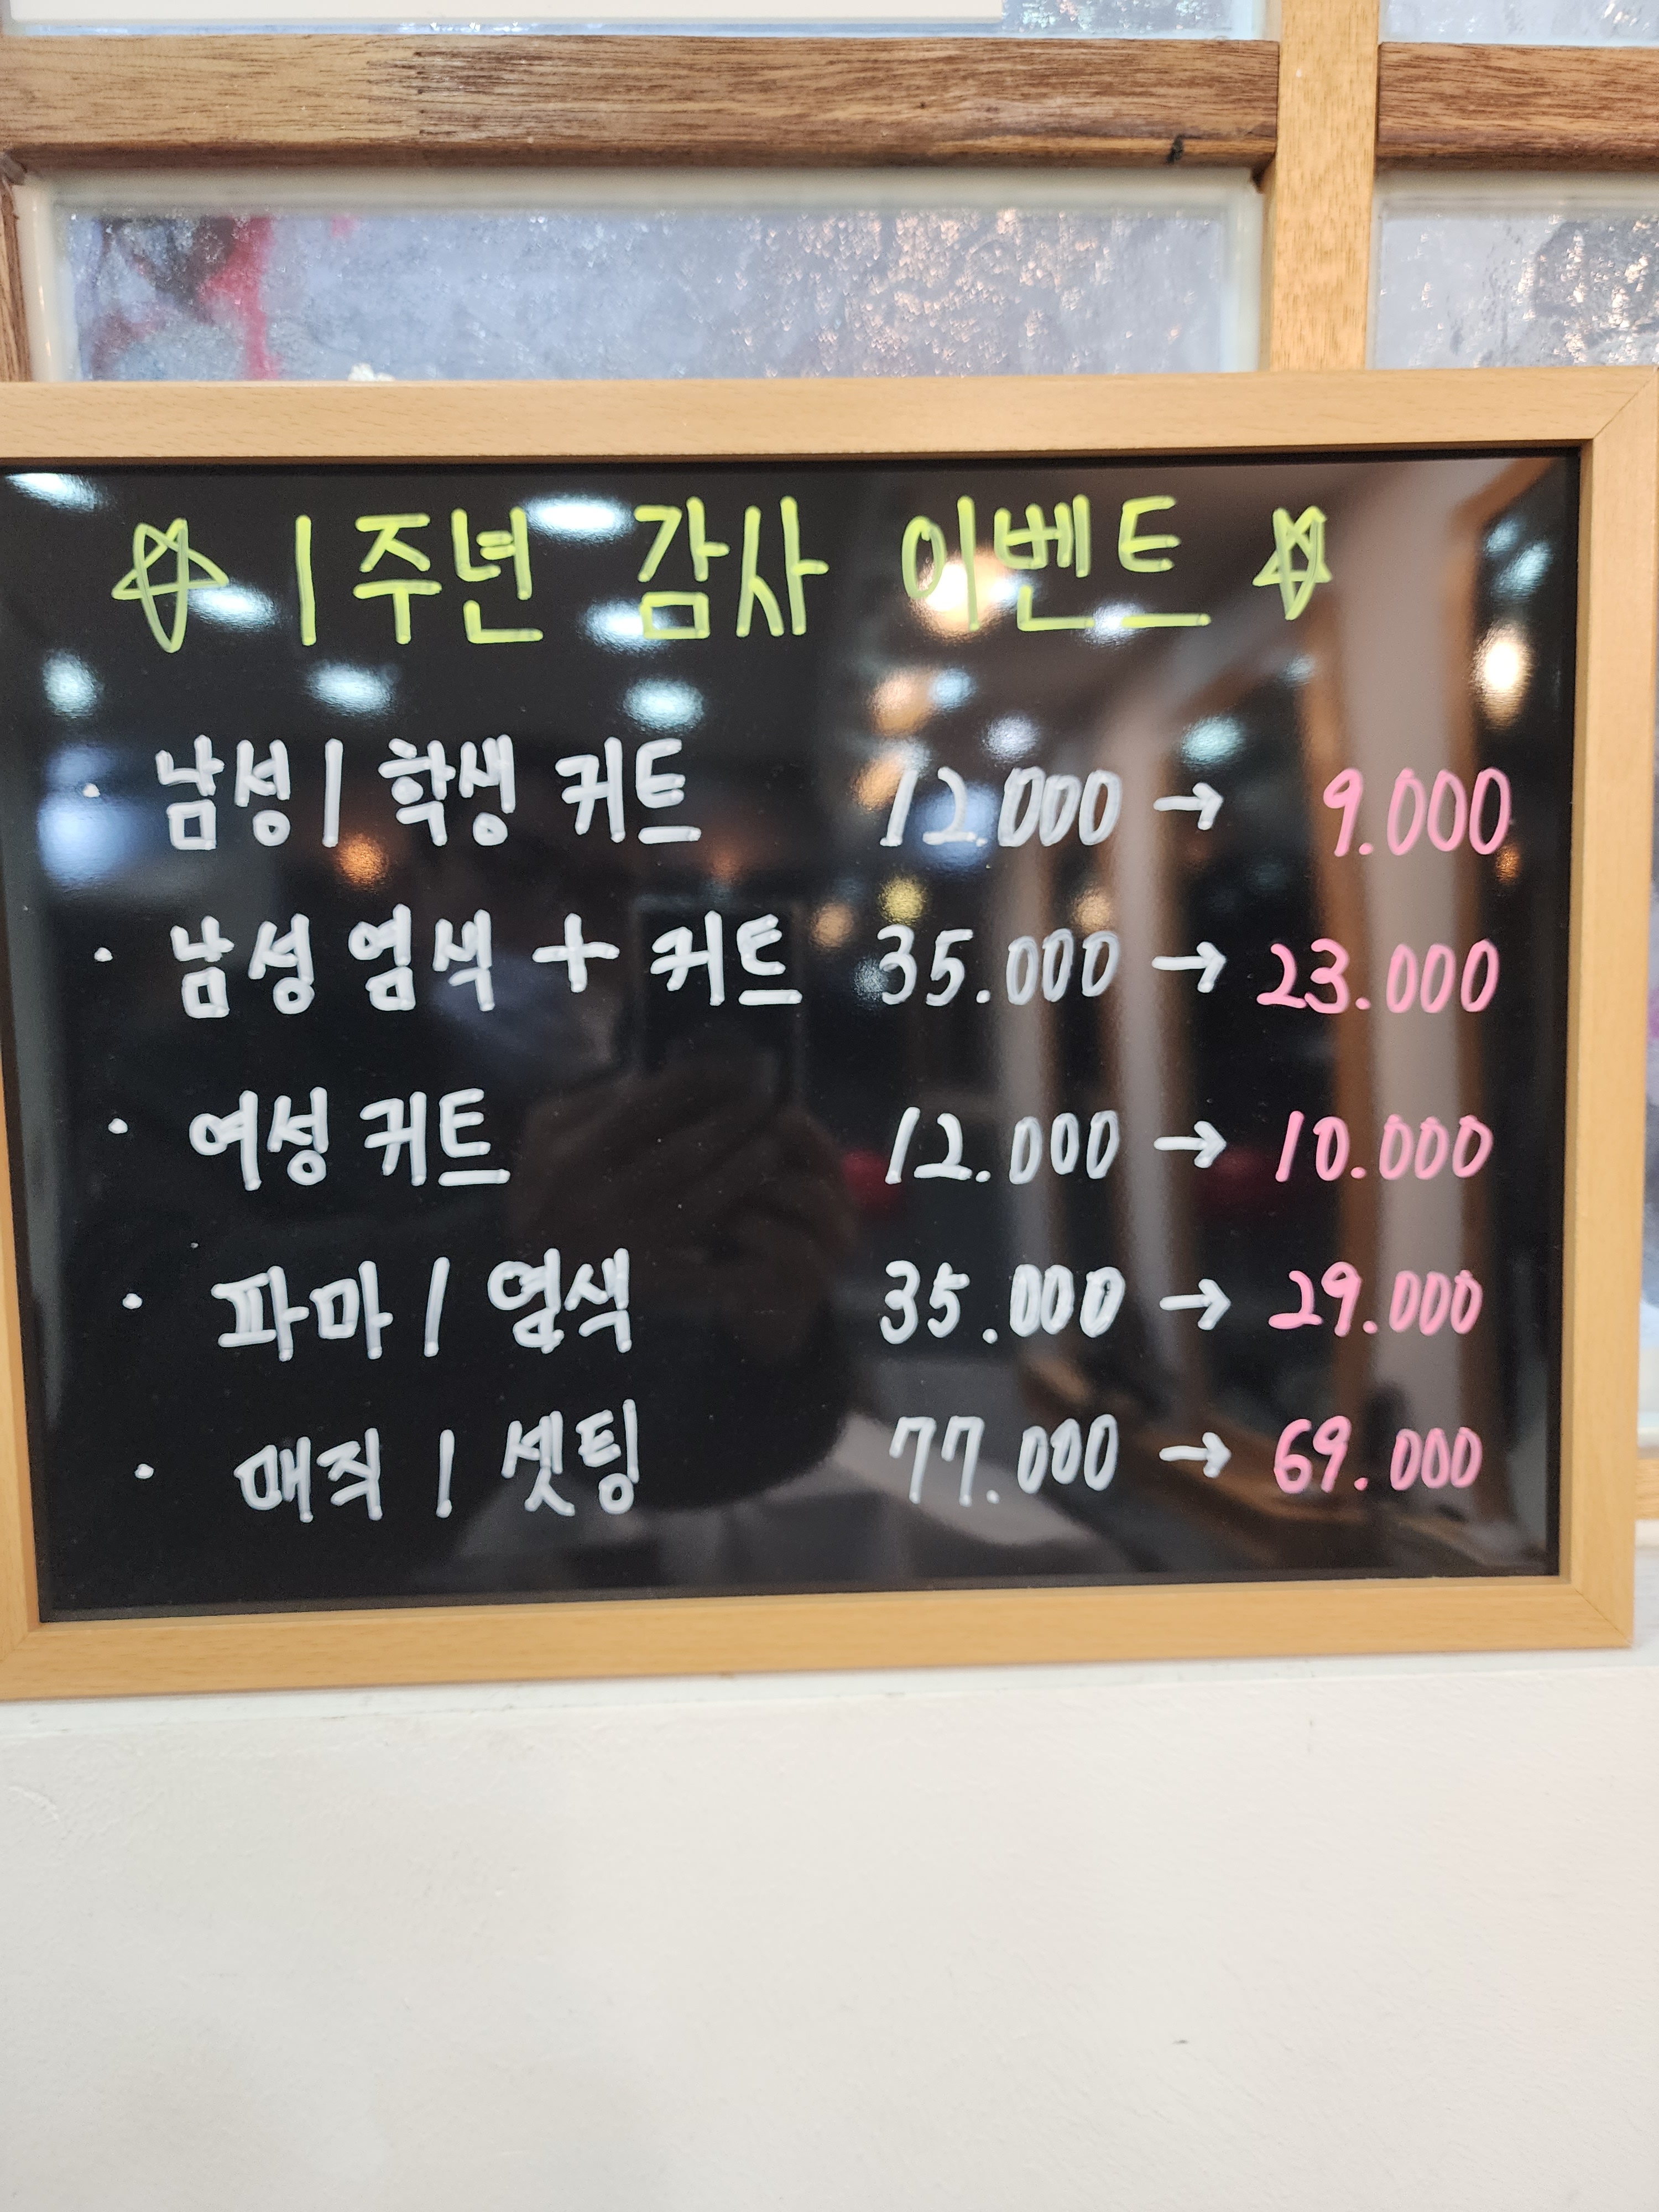 ☆ 1주년 감사 이벤트 ☆
· 남성 / 학생 커트 12.000 → 9.000
· 남성 염색 + 커트 35.000 → 23.000
· 여성 커트 12.000 → 10.000
· 파마 / 염색 35.000 → 29.000
· 매직 / 셋팅 77.000 → 69.000